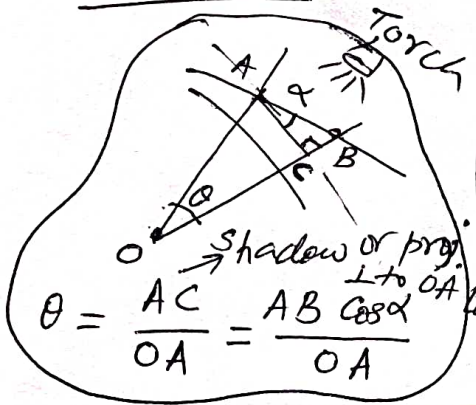 Torch
A
α
B
C
θ
O
Shadow or proj.
⊥ to OA
θ = AC / OA = AB Cosα / OA